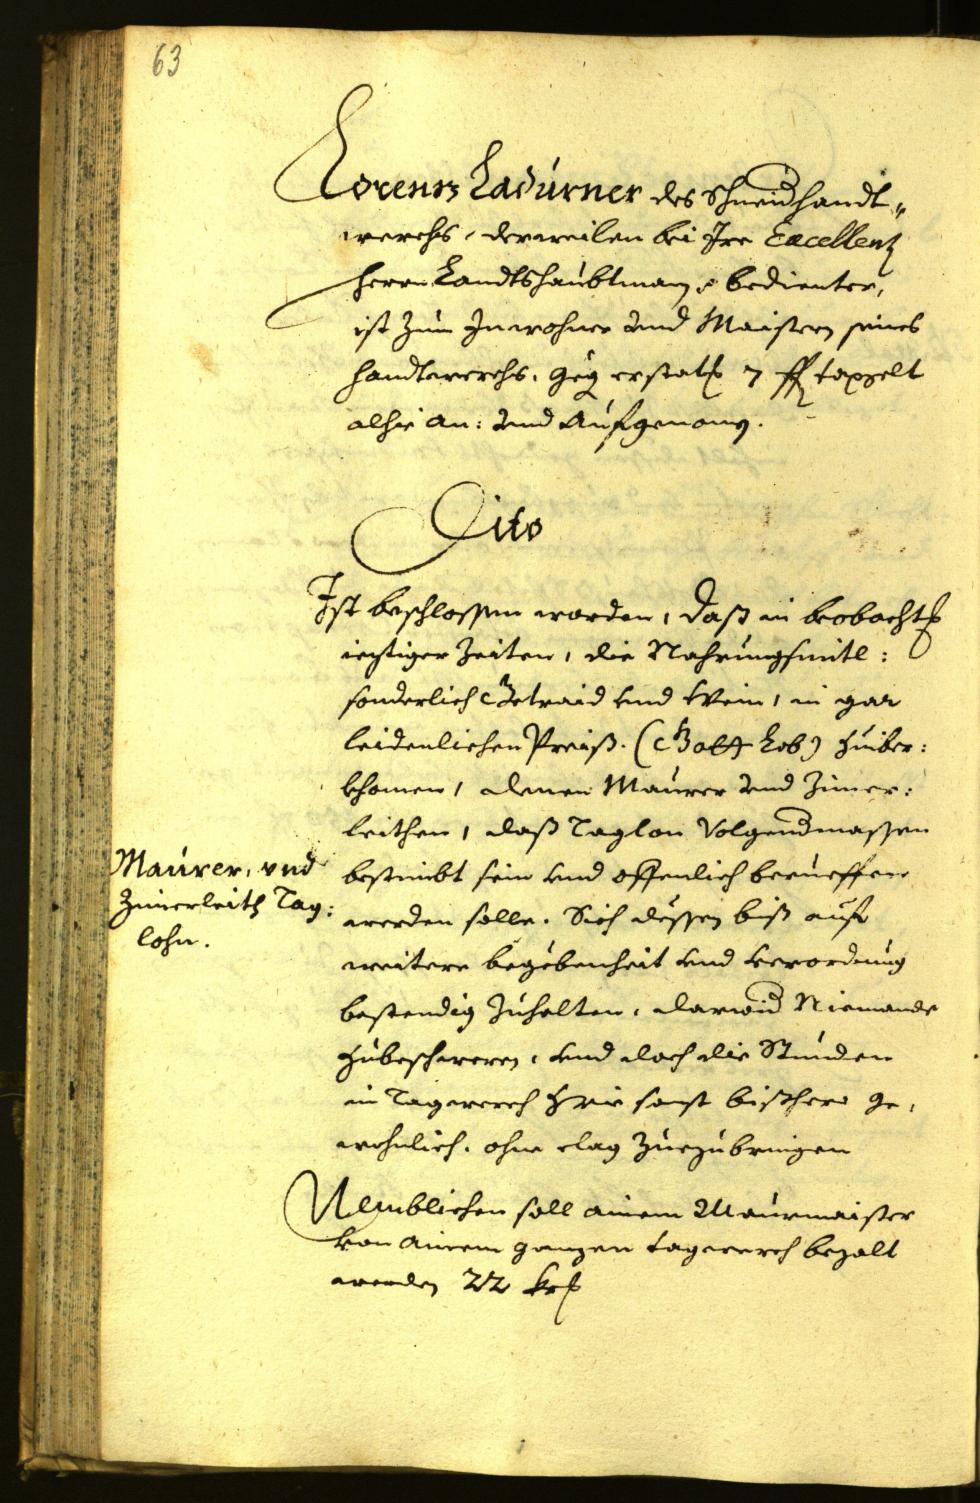 63
Lorenz Ladurner des Schneidhandt„
werchs, derweilen bei Ire Excellenz
Herrn Landtshaubtman bedienter,
ist zum Inwohner und Maistern seines
handtwerchs, gegen erstatt 7 tax gelt
alhie an: und Aufgenomen.
Dito
Ist beschlossen worden, daß in beobacht
ieziger Zeiten, die Nahrungsmitl:
sonderlich Getraid und Wein, in gar
leidenlichen Preiß. (Gott Lob) hinüber:
khomen, denen Maurer und Zimer:
leithen, daß Taglon Volgendmassen
bestimbt sein und offenlich berueffen
werden solle. Sich dessen biß auf
weitere begebenheit und verordnung
bestendig zuhalten, darwid Niemande
zubeschweren, und doch die Stunden
in Tagwerch wie sonst bißhero ge,
wohnlich, ohne clag zuezubringen
Maurer, und
Zimerleith Tag:
lohn.
Nemblichen soll ainem Maurmaister
von ainem ganzen tagwerch bezalt
werden 22 kr